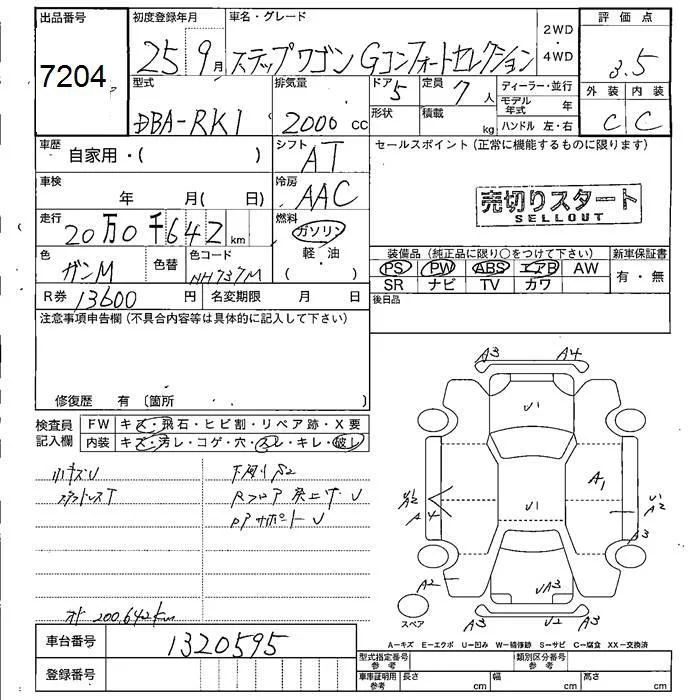 出品番号
7204
初度登録年月
25 9月
車名・グレード
ステップワゴン Gコンフォートセレクション
2WD
・
4WD
評価点
3.5
外装 内装
C C
型式
DBA-RK1
排気量
2000 cc
ドア 5
形状
定員 7人
積載 kg
ディーラー・並行
モデル年式 年
ハンドル 左・右
車歴
自家用・( )
シフト
AT
車検
年 月( 日)
冷房
AAC
走行
20万0千642 km
燃料
ガソリン
軽・油
( )
色
ガンM
色替
色コード
NH737M
R券 13600 円
名変期限 月 日
セールスポイント (正常に機能するものに限ります)
売切りスタート
SELLOUT
装備品 (純正品に限り○をつけて下さい)
PS PW ABS エアB AW
SR ナビ TV カワ
新車保証書
有・無
後日品
注意事項申告欄 (不具合内容等は具体的に記入して下さい)
修復歴 有 〔箇所 〕
検査員
記入欄
FW キズ・飛石・ヒビ割・リペア跡・X要
内装 キズ・汚レ・コゲ・穴・スレ・キレ・破レ
小キズU
スタットレスT
下廻りS2
Rフロア突上げ U
Rアサポート U
オド 200,642km
A3 A4
U1
A1
U1
A4
U1
A2
A3
A2
UA3
A3
U2 A3
スペア
A-キズ E-エクボ U-凹み W-補修跡 S-サビ C-腐食 XX-交換済
車台番号 1320595
登録番号
型式指定番号
参考
類別区分番号
参考
車庫証明用
参考
長さ cm
幅 cm
高さ cm